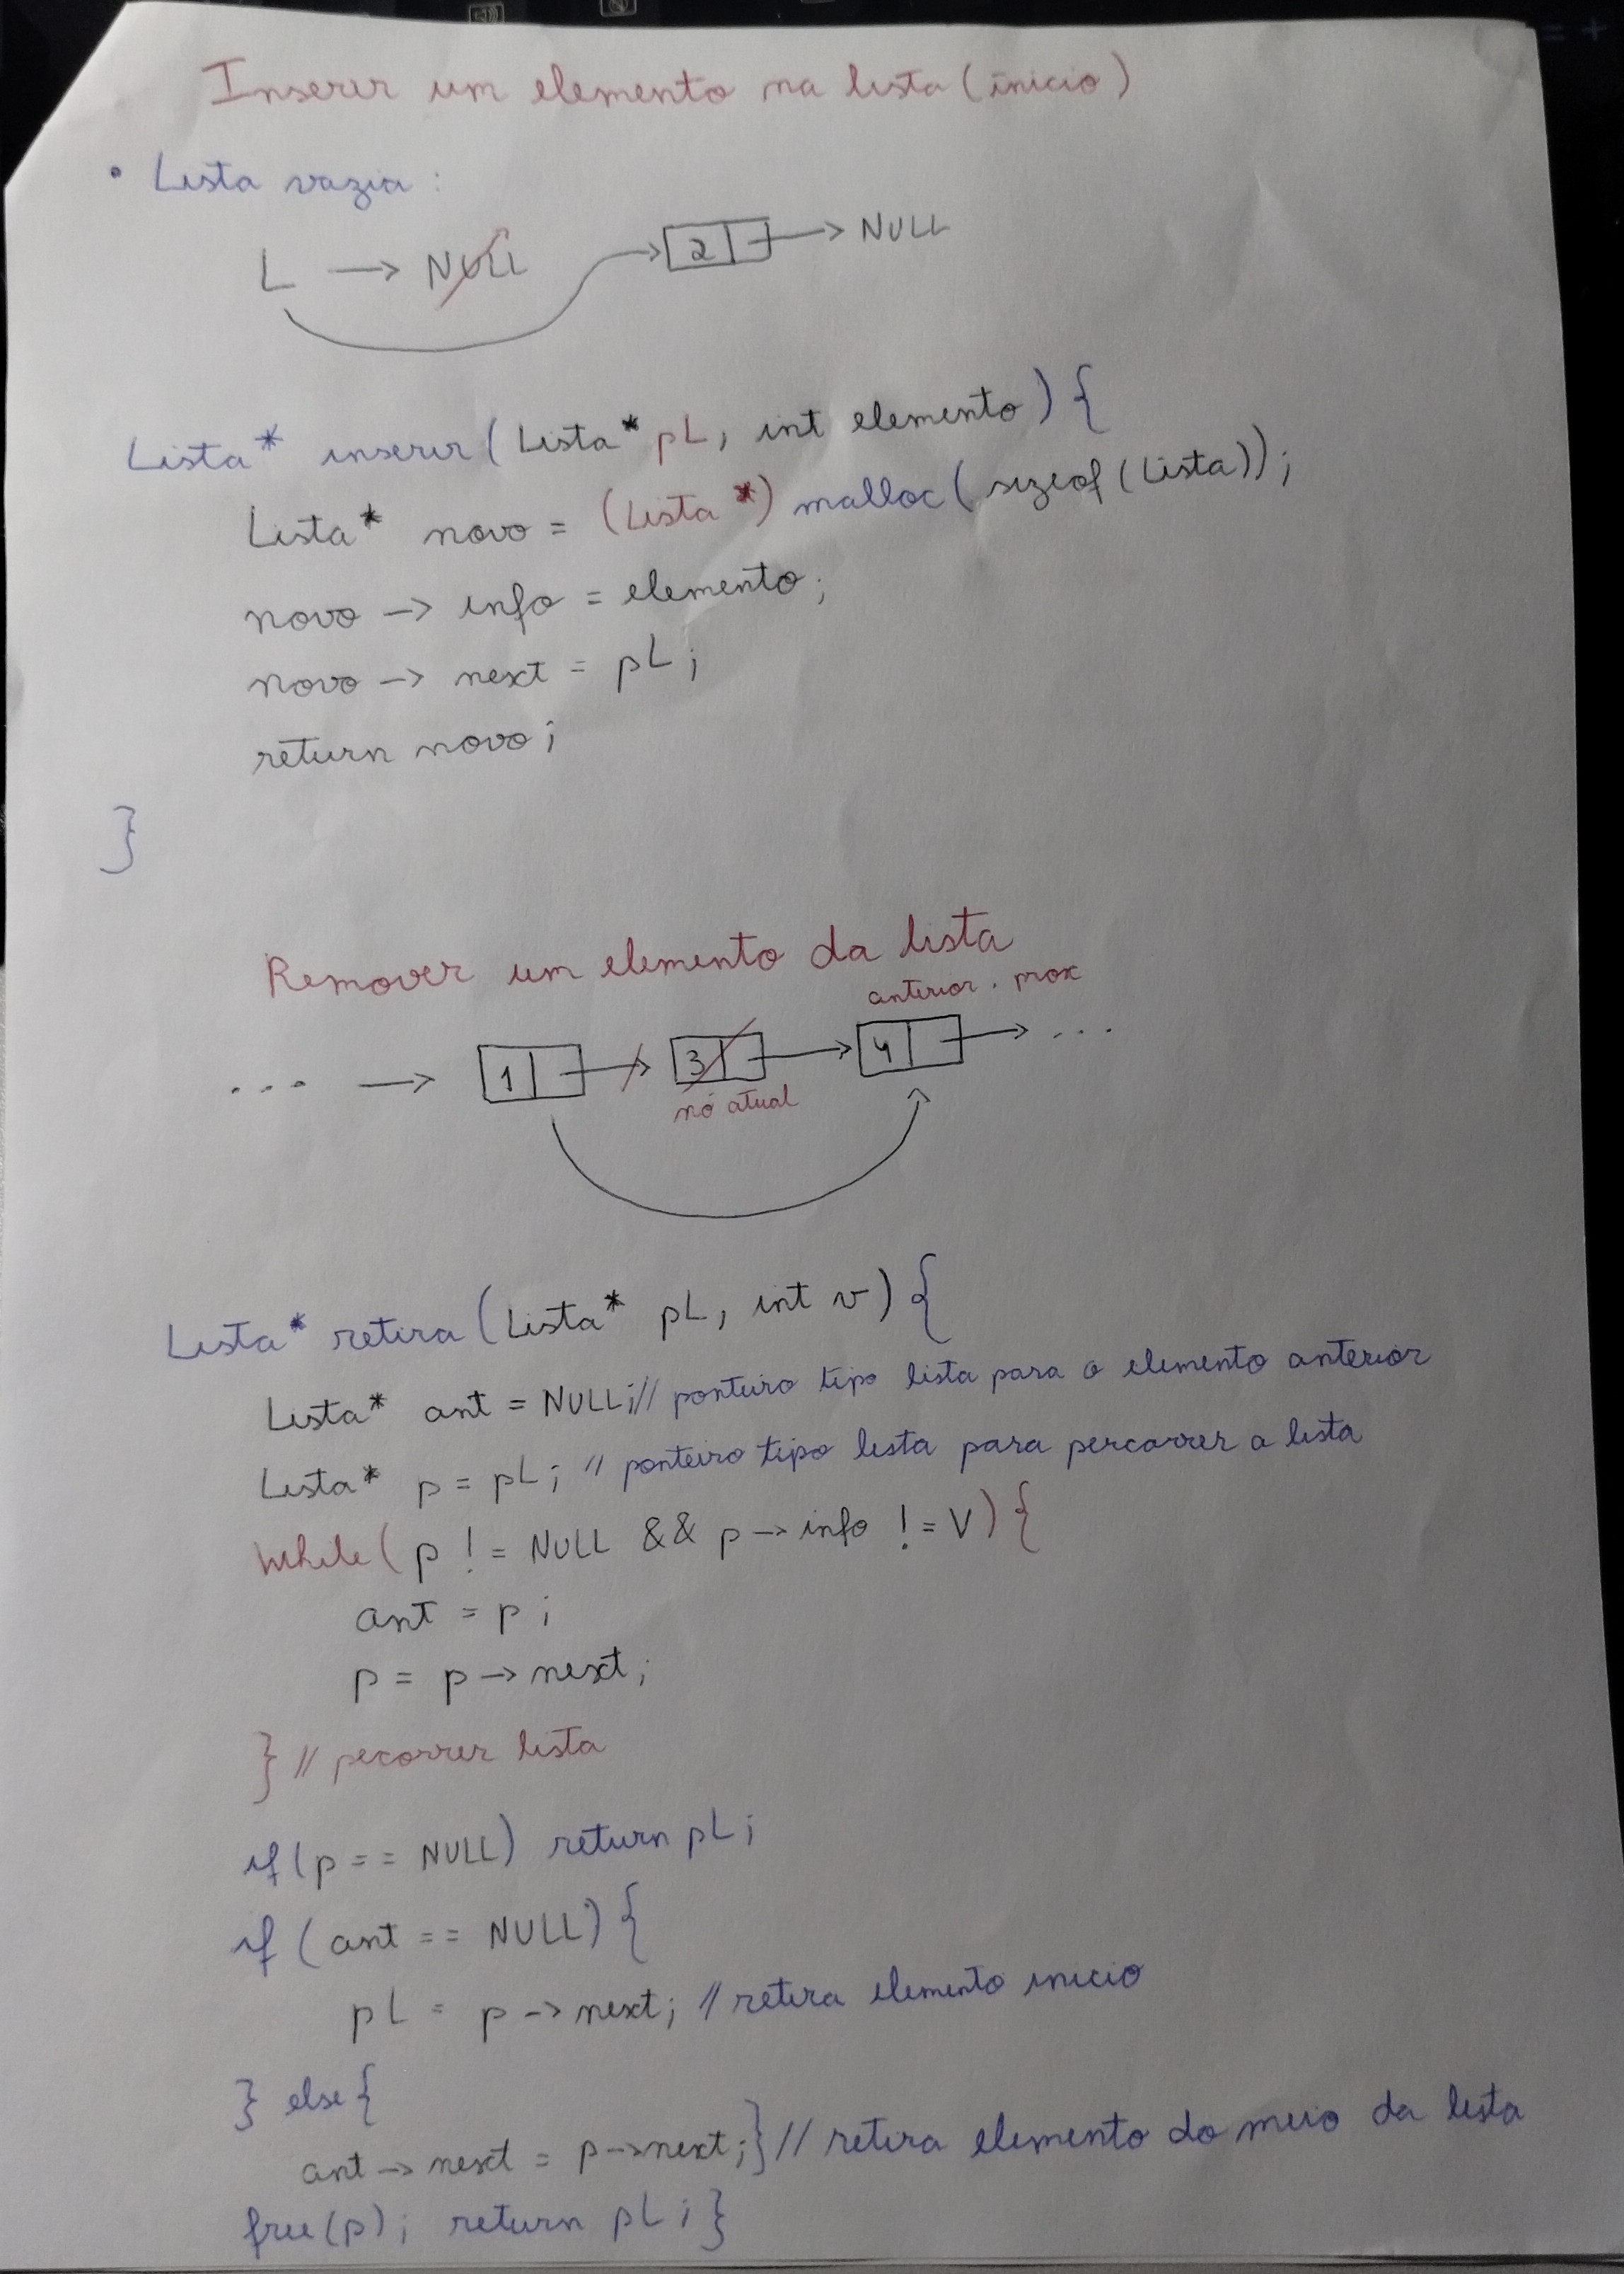 Inserir um elemento na lista (início)
• Lista vazia:
L → NULL 2 → NULL
Lista* inserir (Lista* pL, int elemento) {
Lista* novo = (Lista*) malloc (sizeof (Lista));
novo -> info = elemento;
novo -> next = pL;
return novo;
}
Remover um elemento da lista
anterior . prox
... → 1 → 3 → 4 → ...
nó atual
Lista* retira (Lista* pL, int v) {
Lista* ant = NULL; // ponteiro tipo lista para o elemento anterior
Lista* p = pL; // ponteiro tipo lista para percorrer a lista
While (p != NULL && p -> info != V) {
ant = p;
p = p -> next;
} // pecorrer lista
if (p == NULL) return pL;
if (ant == NULL) {
pL = p -> next; // retira elemento inicio
} else {
ant -> next = p -> next; } // retira elemento do meio da lista
free (p); return pL; }